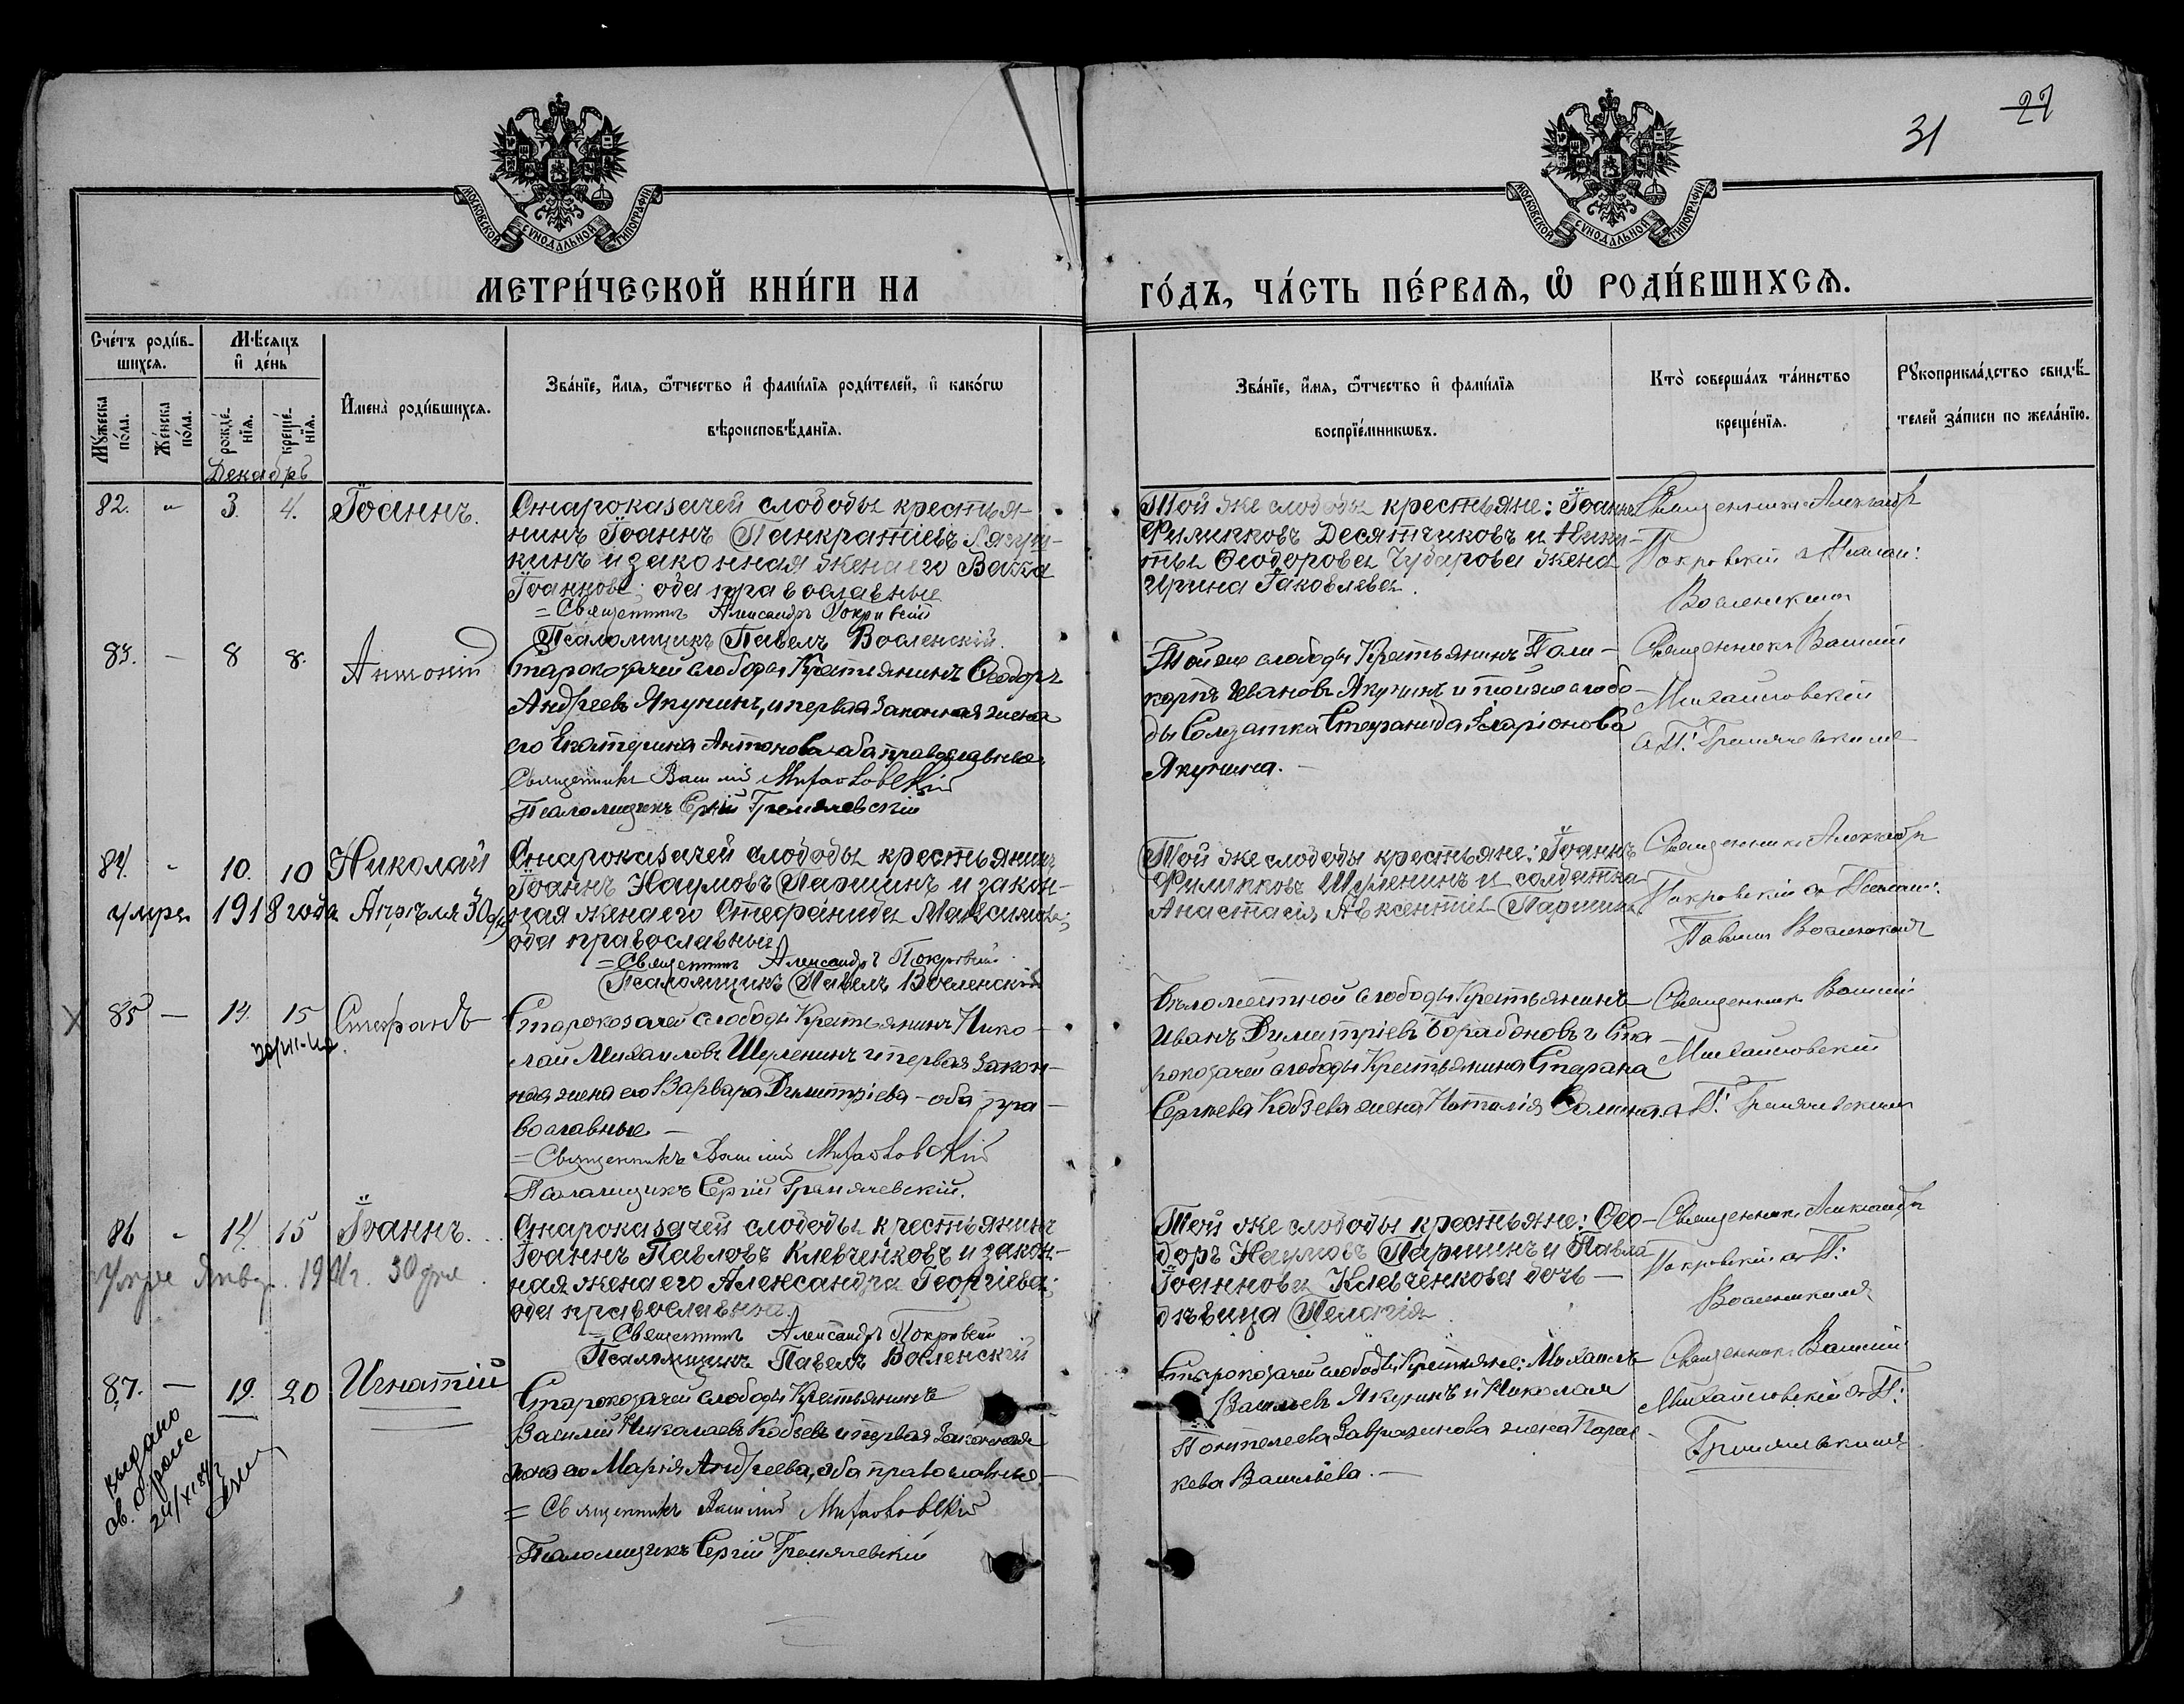 31
27
МОСКОВСКОЙ СѴНОДАЛЬНОЙ ТИПОГРАФІИ
МОСКОВСКОЙ СѴНОДАЛЬНОЙ ТИПОГРАФІИ
МЕТРИ́ЧЕСКОЙ КНИ́ГИ НА
ГО́ДЪ, ЧА́СТЬ ПЕ́РВАѦ, Ѡ РОДИ́ВШИХСѦ.
Сче́тъ роди́в-
шихсѧ.
Мꙋ́жеска по́ла.
Же́нска по́ла.
Мѣ́сѧцъ и҆ де́нь
рожде́-нїѧ.
креще́-нїѧ.
И҆мена̀ роди́вшихсѧ.
Зва́нїе, и҆́мѧ, ѻ҆́тчество и҆ фами́лїѧ роди́телей, и҆ како́гѡ
вѣроисповѣ́данїѧ.
Зва́нїе, и҆́мѧ, ѻ҆́тчество и҆ фами́лїѧ
воспрїе́мникѡвъ.
Кто̀ соверша́лъ та́инство
креще́нїѧ.
Рꙋкоприкла́дство свидѣ́-
телей за́писи по жела́нїю.
Декабрь
82. " 3. 4. Іоаннъ.
Староказачей слободы крестья-
нинъ Іоаннъ Панкратіевъ
кинъ и законная жена его Васса
Іоаннова; оба православные
= Священникъ Александръ Покровскій
Псаломщикъ Павелъ Воленскій.
Той же слободы крестьяне: Іоаннъ
Филипповъ Десятчиковъ и Ники-
ты Ѳеодорова Чубарова жена
Ирина Іаковлева.
Священникъ Александр
Покровскій с Псалом:
83. — 8 8. Антоній
Староказачей слободы Крестьянинъ Ѳеодоръ
Андреевъ Якунинъ, и первая законная жена
его Екатерина Антонова оба православные.
Священникъ Василій Михайловскій
Псаломщикъ Сергій Гремячевскій
Той же слободы Крестьянинъ Поли-
карпъ Ивановъ Якунинъ и той же слобо-
ды Солдатка Стефанида Иларіонова
Якунина. —
Священникъ Василій
Михайловскій
с П: Гремячевскимъ
84. " 10. 10 Николай
умре 1918 года Апрѣля 30
Староказачей слободы крестьянинъ
Іоаннъ Наумовъ Паршинъ и закон-
ная жена его Стефанида Максимова;
оба православные.
= Священникъ Александръ Покровскій
Псаломщикъ Павелъ Воленскій
Той же слободы крестьяне: Іоаннъ
Филипповъ Шуленинъ и солдатка
Анастасія Авксентіева Паршина
Священникъ Александръ
Покровскій с Псалом:
Павломъ Воленскимъ
X 85 — 14. 15 Стефанъ
Староказачей слободы Крестьянинъ Нико-
лай Михаиловъ Шуленинъ и первая закон-
ная жена его Варвара Димитріева — оба пра-
вославные —
= Священникъ Василій Михайловскій
Псаломщикъ Сергій Гремячевскій.
Бѣломестной слободы Крестьянинъ
Иванъ Димитріевъ и Ста-
роказачей слободы Крестьянина Стефана
Сергѣева Кобзева жена Наталія
Священникъ Василій
Михайловскій
с П: Гремячевскимъ
86 " 14. 15 Іоаннъ.
Умре Янвр. 30 дня
Староказачей слободы крестьянинъ
Іоаннъ Павловъ Клевченковъ и закон-
ная жена его Александра Георгіева;
оба православные.
= Священникъ Александръ Покровскій
Псаломщикъ Павелъ Воленскій
Той же слободы крестьяне: Ѳео-
доръ Наумовъ Паршинъ и Павла
Іоаннова Клевченкова дочь —
дѣвица Пелагія.
Священникъ Александръ
Покровскій с П:
Воленскимъ
87. — 19. 20 Игнатій
выдано
св. о роже
24/XI
Староказачей слободы Крестьянинъ
Василій Николаевъ Кобзевъ и первая законная
жена его Марія Андреева, оба православные —
= Священникъ Василій Михайловскій
Псаломщикъ Сергій Гремячевскій
Староказачей слободы Крестьяне: Михаилъ
Васильевъ Якунинъ и Николая
Пантелеева жена Парас-
кева Васильева. —
Священникъ Василій
Михайловскій с П:
Гремячевскимъ